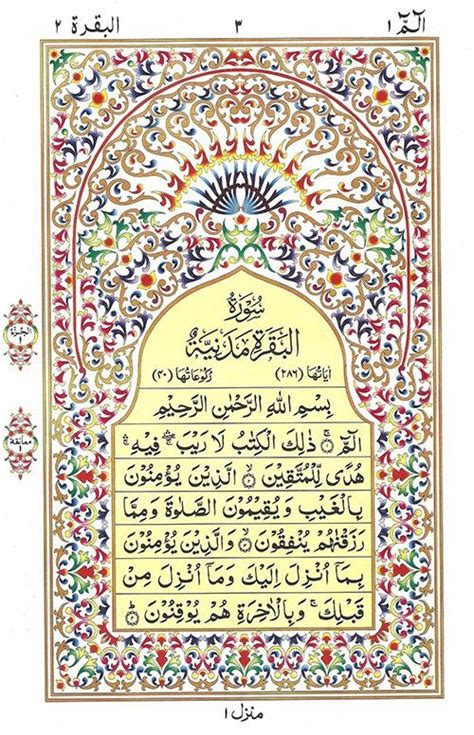 الٓمّٓ ١ ٣ البقرة ٢
سُوْرَةُ
الْبَقَرَةِ مَدَنِيَّةٌ
اٰيَاتُهَا (٢٨٦) رُكُوْعَاتُهَا (٤٠)
بِسْمِ اللّٰهِ الرَّحْمٰنِ الرَّحِيْمِ
الٓمّٓ ۚ ذٰلِكَ الْكِتٰبُ لَا رَيْبَ ۛ فِيْهِ ۛ
هُدًى لِّلْمُتَّقِيْنَ ۙ الَّذِيْنَ يُؤْمِنُوْنَ
بِالْغَيْبِ وَ يُقِيْمُوْنَ الصَّلٰوةَ وَ مِمَّا
رَزَقْنٰهُمْ يُنْفِقُوْنَ ۙ وَالَّذِيْنَ يُؤْمِنُوْنَ
بِمَآ اُنْزِلَ اِلَيْكَ وَمَآ اُنْزِلَ مِنْ
قَبْلِكَ ۚ وَبِالْاٰخِرَةِ هُمْ يُوْقِنُوْنَ ۭ
الجزء
١
معانقة
١
منزل ١